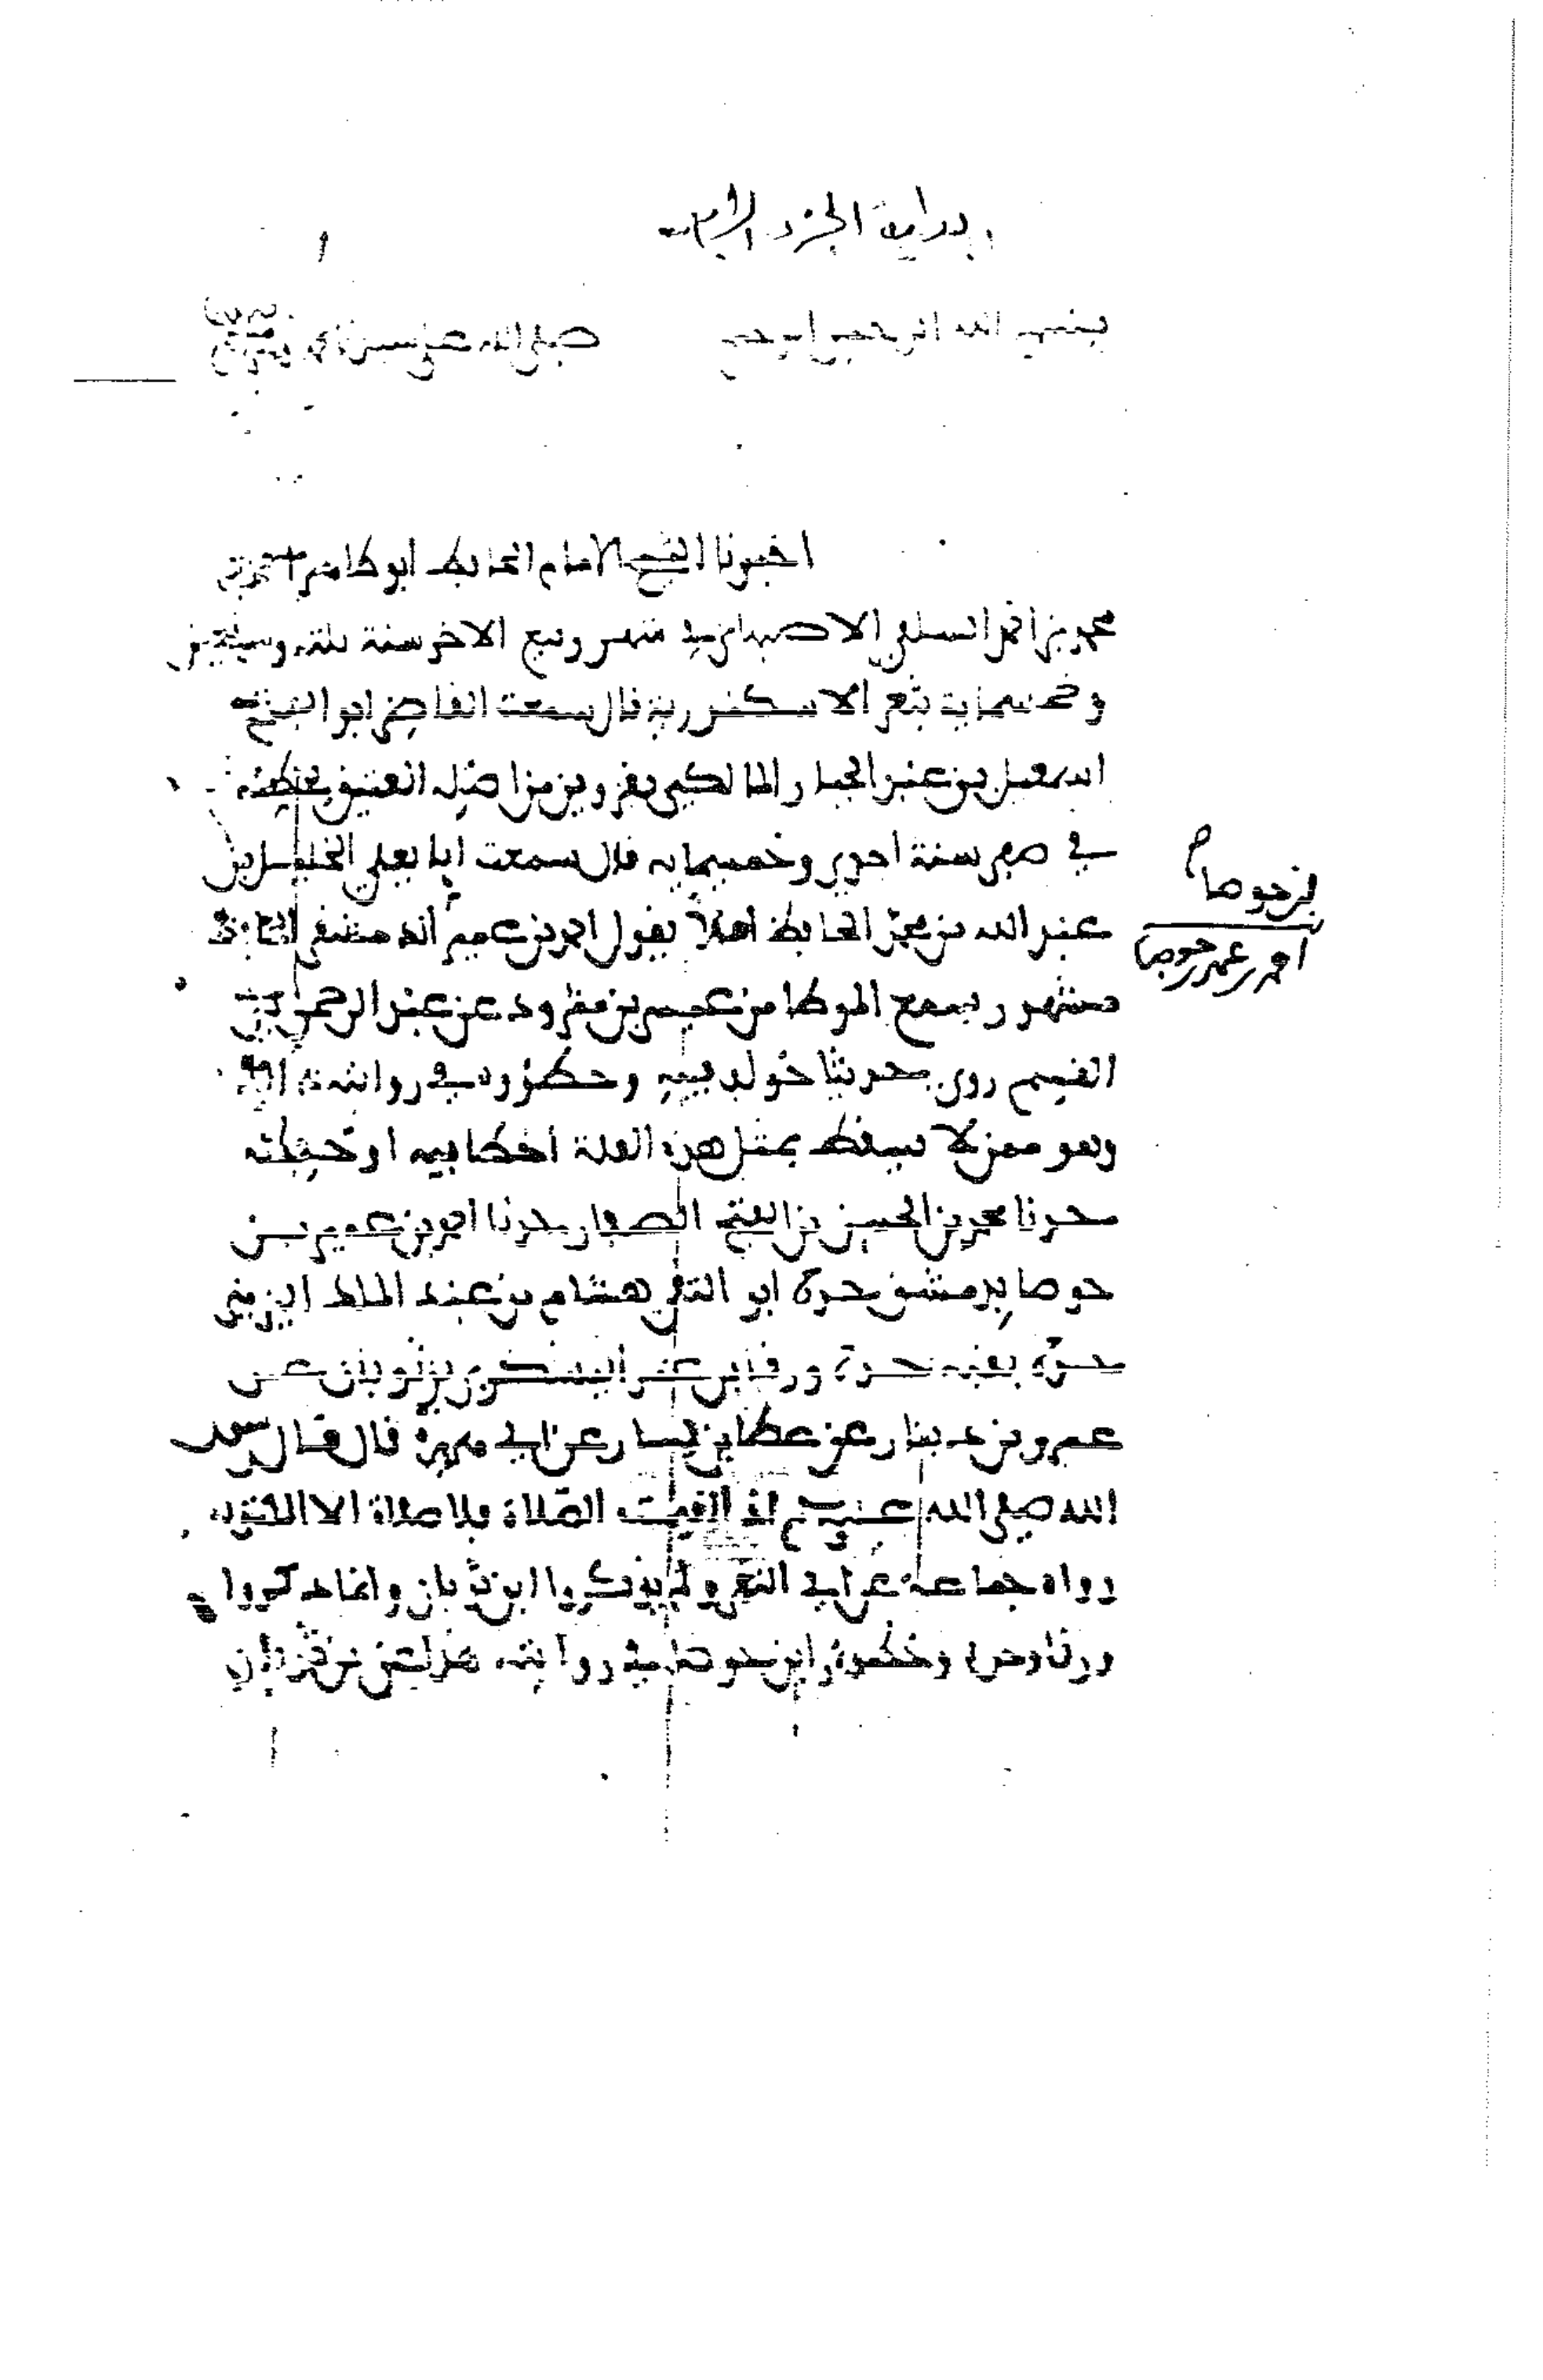 بداية الجزء الرابع
بسم الله الرحمن الرحيم صلى الله على سيدنا محمد
اخبرنا الشيخ الامام الحافظ ابو طاهر احمد بن
محمد بن احمد السلفي الاصبهاني في شهر ربيع الاخر سنة ثلث وسبعين
وخمسماية بثغر الاسكندرية قال سمعت القاضي ابو الفتح
اسمعيل بن عبد الجبار المالكي بقزوين من اصله العتيق بخطه
في صفر سنة احدى وخمسماية قال سمعت ابا يعلى الخليل بن
عبد الله بن محمد الحافظ املا يقول احمد بن عمير الدمشقي الحافظ
مشهور سمع الموطا من عيسى بن مثرود عن عبد الرحمن بن
القسم روى حديثا خولف فيه وحطوه في روايته
وهو ممن لا يسقط بمثل هذه العلة اخطا فيه او حفظه
حدثنا محمد بن الحسن بن الفتح الصفار حدثنا احمد بن عمير بن
حوصا بدمشق حدثنا ابو التقي هشام بن عبد الملك اليزني
حدثنا بقية حدثنا ورقا بن عمر اليشكري بن ثوبان عن
عمرو بن دينار عن عطا بن يسار عن ابي هريرة قال قال رسول
الله صلى الله عليه وسلم اذا اقيمت الصلاة فلا صلاة الا المكتوبة
رواه جماعة عن ابي التقي ولم يذكروا ابن ثوبان وانما ذكروا
ورقا وحده وخطوا ابن حوصا في روايته عن ابن ثوبان
بن حوصا
احمد بن عمير بن حوصا